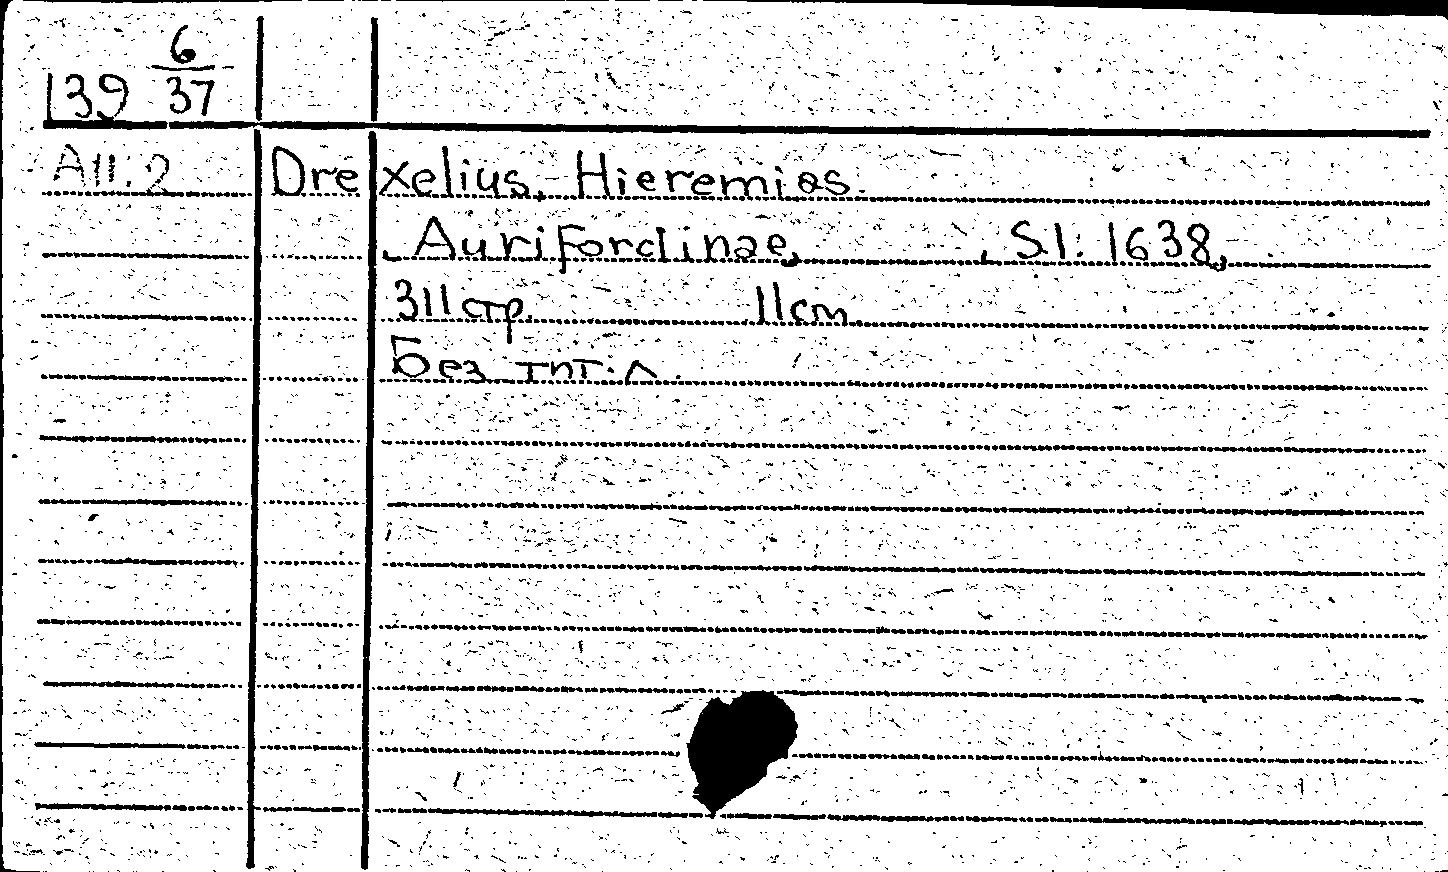 139 6/37
All. 2 Drexelius, Hieremias.
Aurifordinae, , S.l. 1638,
311 стр. 11 cm
Без тит. л.